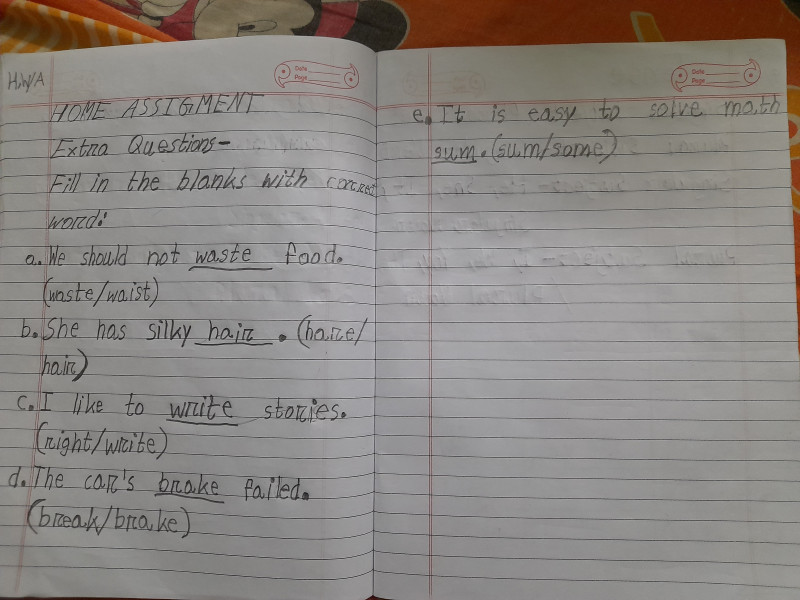 H.W/A
Date
Page
HOME ASSIGMENT
Extra Questions-
Fill in the blanks with correct
word:
a. We should not waste food.
(waste/waist)
b. She has silky hair. (hare/
hair)
c. I like to write stories.
(right/write)
d. The car's brake failed.
(break/brake)
Date
Page
e. It is easy to solve math
sum. (sum/some)